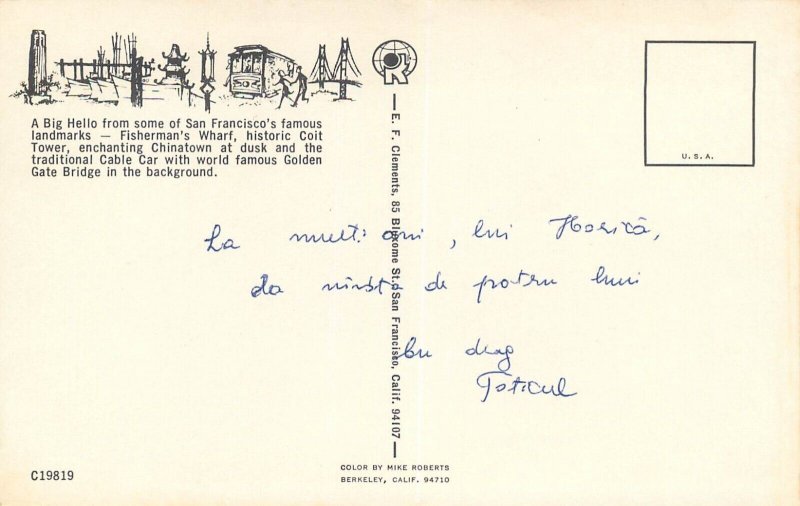 A Big Hello from some of San Francisco's famous
landmarks — Fisherman's Wharf, historic Coit
Tower, enchanting Chinatown at dusk and the
traditional Cable Car with world famous Golden
Gate Bridge in the background.
U.S.A.
E. F. Clements, 85 Bluxome St., San Francisco, Calif. 94107
La mulți ani, lui Horică,
da vîrstă de patru luni
Cu drag
Tăticul
C19819
COLOR BY MIKE ROBERTS
BERKELEY, CALIF. 94710